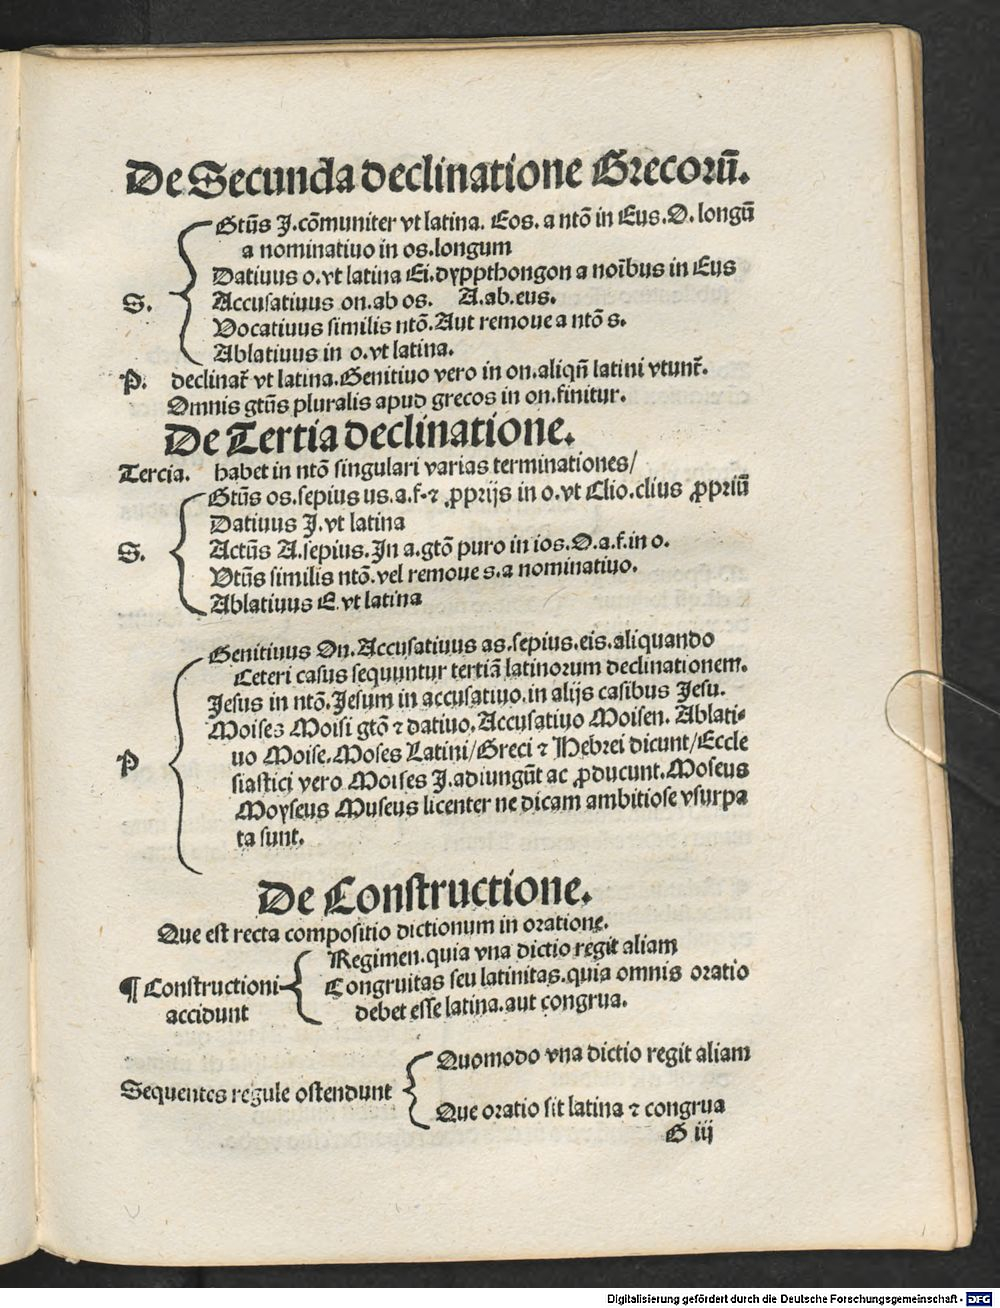 De Secunda declinatione Grecorū.
Gtūs J. cōmuniter vt latina. Eos. a ntō in Eus. O. longū
a nominatiuo in os. longum
Datiuus o. vt latina Ei. dyppthongon a noībus in Eus
S. Accusatiuus on. ab os. A. ab. eus.
Vocatiuus similis ntō. Aut remoue a ntō s.
Ablatiuus in o. vt latina.
P. declinat̄ vt latina. Genitiuo vero in on. aliqn̄ latini vtunt̄.
Omnis gtūs pluralis apud grecos in on. finitur.
De Tertia declinatione.
Tercia. habet in ntō singulari varias terminationes/
Gtūs os. sepius us. a. f. ⁊ ꝓprijs in o. vt Clio. clius ꝓpriū
Datiuus J. vt latina
S. Actūs A. sepius. Jn a. gtō puro in ios. O. a. f. in o.
Vtūs similis ntō. vel remoue s. a nominatiuo.
Ablatiuus E vt latina
Genitiuus On. Accusatiuus as. sepius. eis. aliquando
Ceteri casus sequuntur tertiā latinorum declinationem.
Jesus in ntō. Jesum in accusatiuo. in alijs casibus Jesu.
Moises Moisi gtō ⁊ datiuo. Accusatiuo Moisen. Ablati-
P uo Moise. Moses Latini/Greci ⁊ Hebrei dicunt/Eccle
siastici vero Moises J. adiungūt ac ꝓducunt. Moseus
Moyseus Museus licenter ne dicam ambitiose vsurpa
ta sunt.
De Constructione.
Que est recta compositio dictionum in oratione.
Regimen. quia vna dictio regit aliam
¶ Constructioni Congruitas seu latinitas. quia omnis oratio
accidunt debet esse latina. aut congrua.
Quomodo vna dictio regit aliam
Sequentes regule ostendunt
Que oratio sit latina ⁊ congrua
G iij
Digitalisierung gefördert durch die Deutsche Forschungsgemeinschaft - DFG